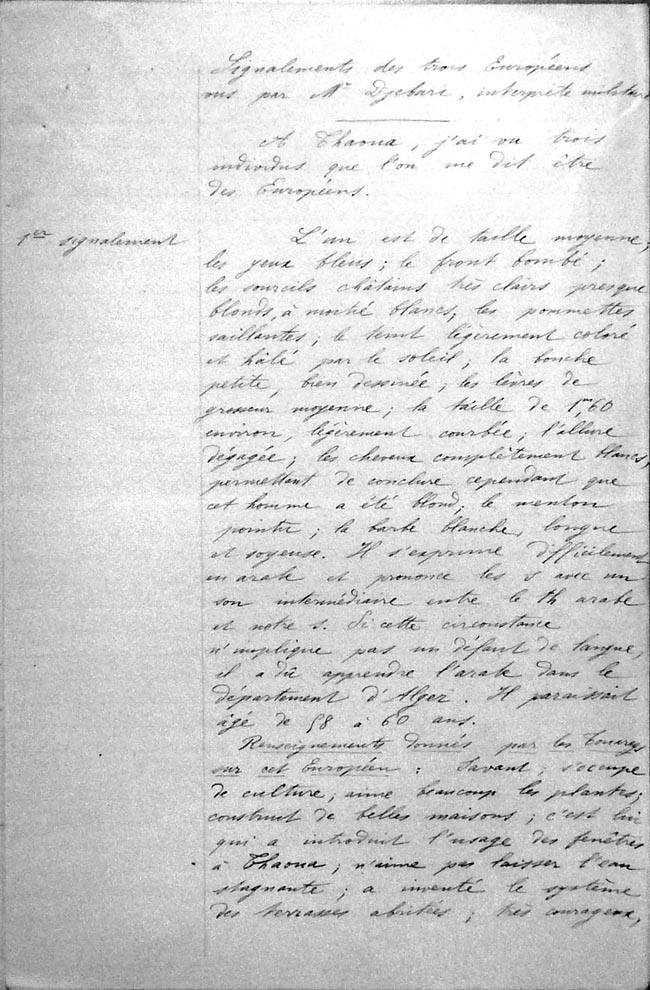 Signalements des trois Européens
vus par Mr Djebari, interprète militaire
A Thaoua, j'ai vu trois
individus que l'on me dit être
des Européens.
1er signalement
L'un est de taille moyenne;
les yeux bleus; le front bombé;
les sourcils châtains très clairs presque
blonds, à moitié blancs; les pommettes
saillantes; le teint légèrement coloré
et hâlé par le soleil; la bouche
petite, bien dessinée; les lèvres de
grosseur moyenne; la taille de 1m,60
environ, légèrement courbée; l'allure
dégagée; les cheveux complètement blancs,
permettant de conclure cependant que
cet homme a été blond; le menton
pointu; la barbe blanche, longue
et soyeuse. Il s'exprime difficilement
en arabe et prononce les s avec un
son intermédiaire entre le th arabe
et notre s. Si cette circonstance
n'implique pas un défaut de langue,
il a dû apprendre l'arabe dans le
département d'Alger. Il paraissait
âgé de 58 à 60 ans.
Renseignements donnés par les Touaregs
sur cet Européen : Savant, s'occupe
de culture; aime beaucoup les plantes;
construit de belles maisons; c'est lui
qui a introduit l'usage des fenêtres
à Thaoua; n'aime pas laisser l'eau
stagnante; a inventé le système
des terrasses abritées; très courageux,